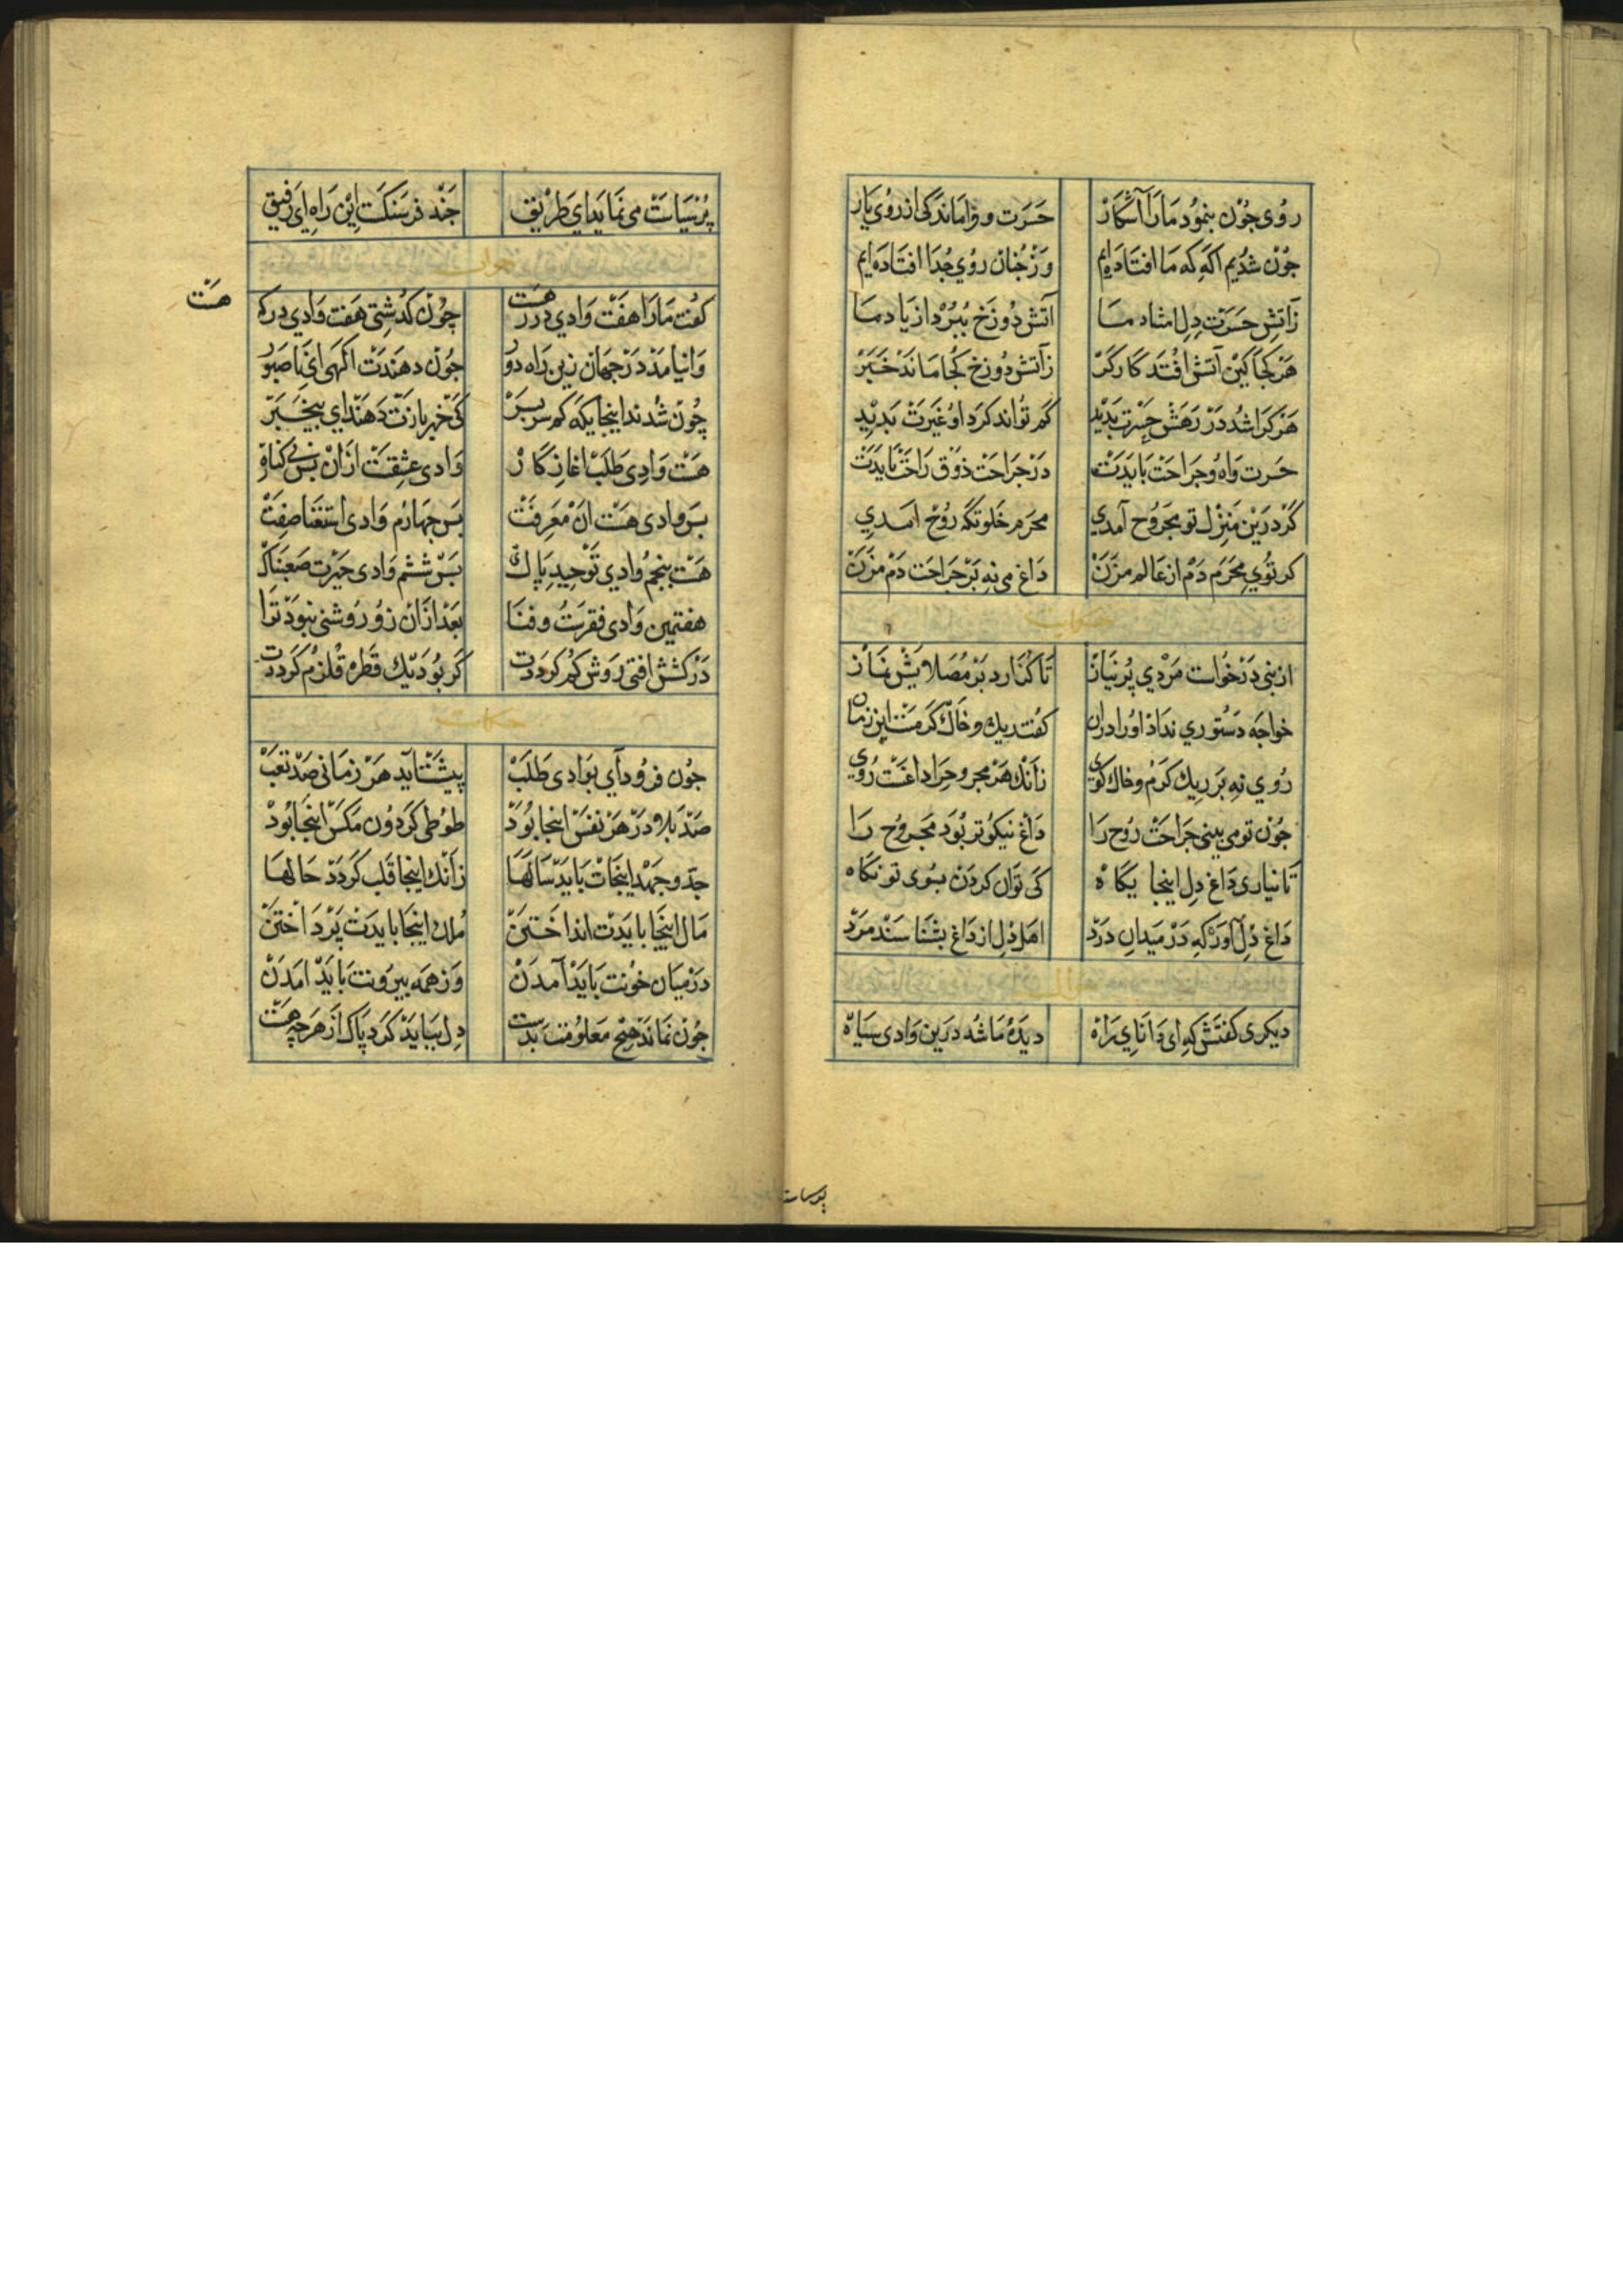 روی جون بنمود ما را آشکار حسرت و واماندکی از روی یار
جون شدیم اکه که ما افتاده‌ایم وز جنان روی جدا افتاده‌ایم
زآتش حسرت دل ما آتش دوزخ ببرد از یاد ما
هر کجا کین آتش افتد کارکر زآتش دوزخ کجا ماند خبر
هر کرا شد در رهش حسرت بدید کم تواند کرد او غیرت بدید
حسرت واه وجراحت بایدت در جراحت ذوق راحت بایدت
کر درین منزل تو مجروح آمدی محرم خلوتکه روح امدی
کر توی محرم دم از عالم مزن داغ می نه بر جراحت دم مزن
حکایت
از نبی درخوات مردی پرنیاز تا کذارد بر مصلایش نماز
خواجه دستوری نداد اورا دران کفت ریك وخاك کرمست این زمان
روی نه بر ریك کرم وخاك کوی زانك هر مجروح را داغست روی
جون تو می بینی جراحت روح را داغ نیکوتر بود مجروح را
تا نیاری داغ دل اینجا یکاه کی توان کردن بسوی تو نکاه
داغ دل آور که در میدان درد اهل دل از داغ بشناسند مرد
دیکری کفتش که ای دانای راه دیده ما شد درین وادی سیاه
بر سیاست
پر سیاست می نماید ای طریق جند فرسنکست این راه ای رفیق
جواب
کفت مارا هفت وادی در رهست چون کذشتی هفت وادی درکه
هست
وانیامد در جهان زین راه دور جون دهندت اکهی ای ناصبور
چون شدند اینجایکه کم سر بسر کی خبر بازت دهند ای بیخبر
هست وادی طلب اغاز کار وادی عشقست ازان بس بی کنار
بس وادی هست ان معرفت بس جهارم وادی استغنا صفت
هست بنجم وادی توحید پاك بس ششم وادی حیرت صعبناك
هفتمین وادی فقرست وفنا بعد ازان زو روشنی نبود ترا
در کشش افتی روش کم کرددت کر بود یك قطره قلزم کرددت
حکایت
جون فرود آی بوادی طلب پیشت آید هر زمانی صد تعب
صد بلا در هر نفس اینجا بود طوطی کردون مکس اینجا بود
جد وجهد اینجات باید سالها زانك اینجا قلب کردد حالها
مال اینجا بایدت انداختن ملك اینجا بایدت پرداختن
در میان خونت باید آمدن وز همه بیرونت باید امدن
جون نماند هیچ معلومت بدست دل بباید کرد پاك از هر چه هست